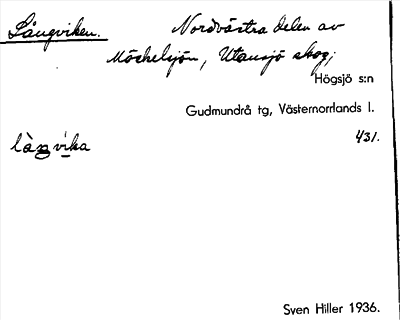 Långviken. Nordvästra delen av
Möckelsjön, Utansjö skog,
Högsjö s:n
Gudmundrå tg, Västernorrlands l.
431.
làŋvika
Sven Hiller 1936.